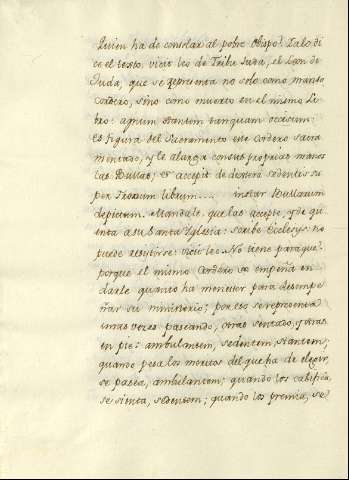 Quien ha de consolar al pobre Obispo? Ya lo di
ce el texto. vicit leo de Tribu Juda, el Leon de
Juda, que se representa no solo como manso
cordero, sino como muerto en el mismo Li
bro: agnum stantem tanquam occisum:
es figura del Sacramento este Cordero sacra
mentado, y le alarga con sus propias manos
las Bullas; et accepit de dextera sedentis su
per Tronum librum.... instar Bullarum
depictum. Mandale que las accepte, y de qu
enta a su Santa Yglesia: scribe Ecclesiae. no
puede resistirse: vicit leo. No tiene para que?
porque el mismo Cordero se empeña en
darle quanto ha menester para desempe
ñar su ministerio; por eso se representa
unas veces paseando, otras sentado, y otras
en pie: ambulantem, sedentem, stantem;
quando pesa los meritos del que ha de elegir,
se pasea, ambulantem; quando los califica,
se sienta, sedentem; quando los premia, se